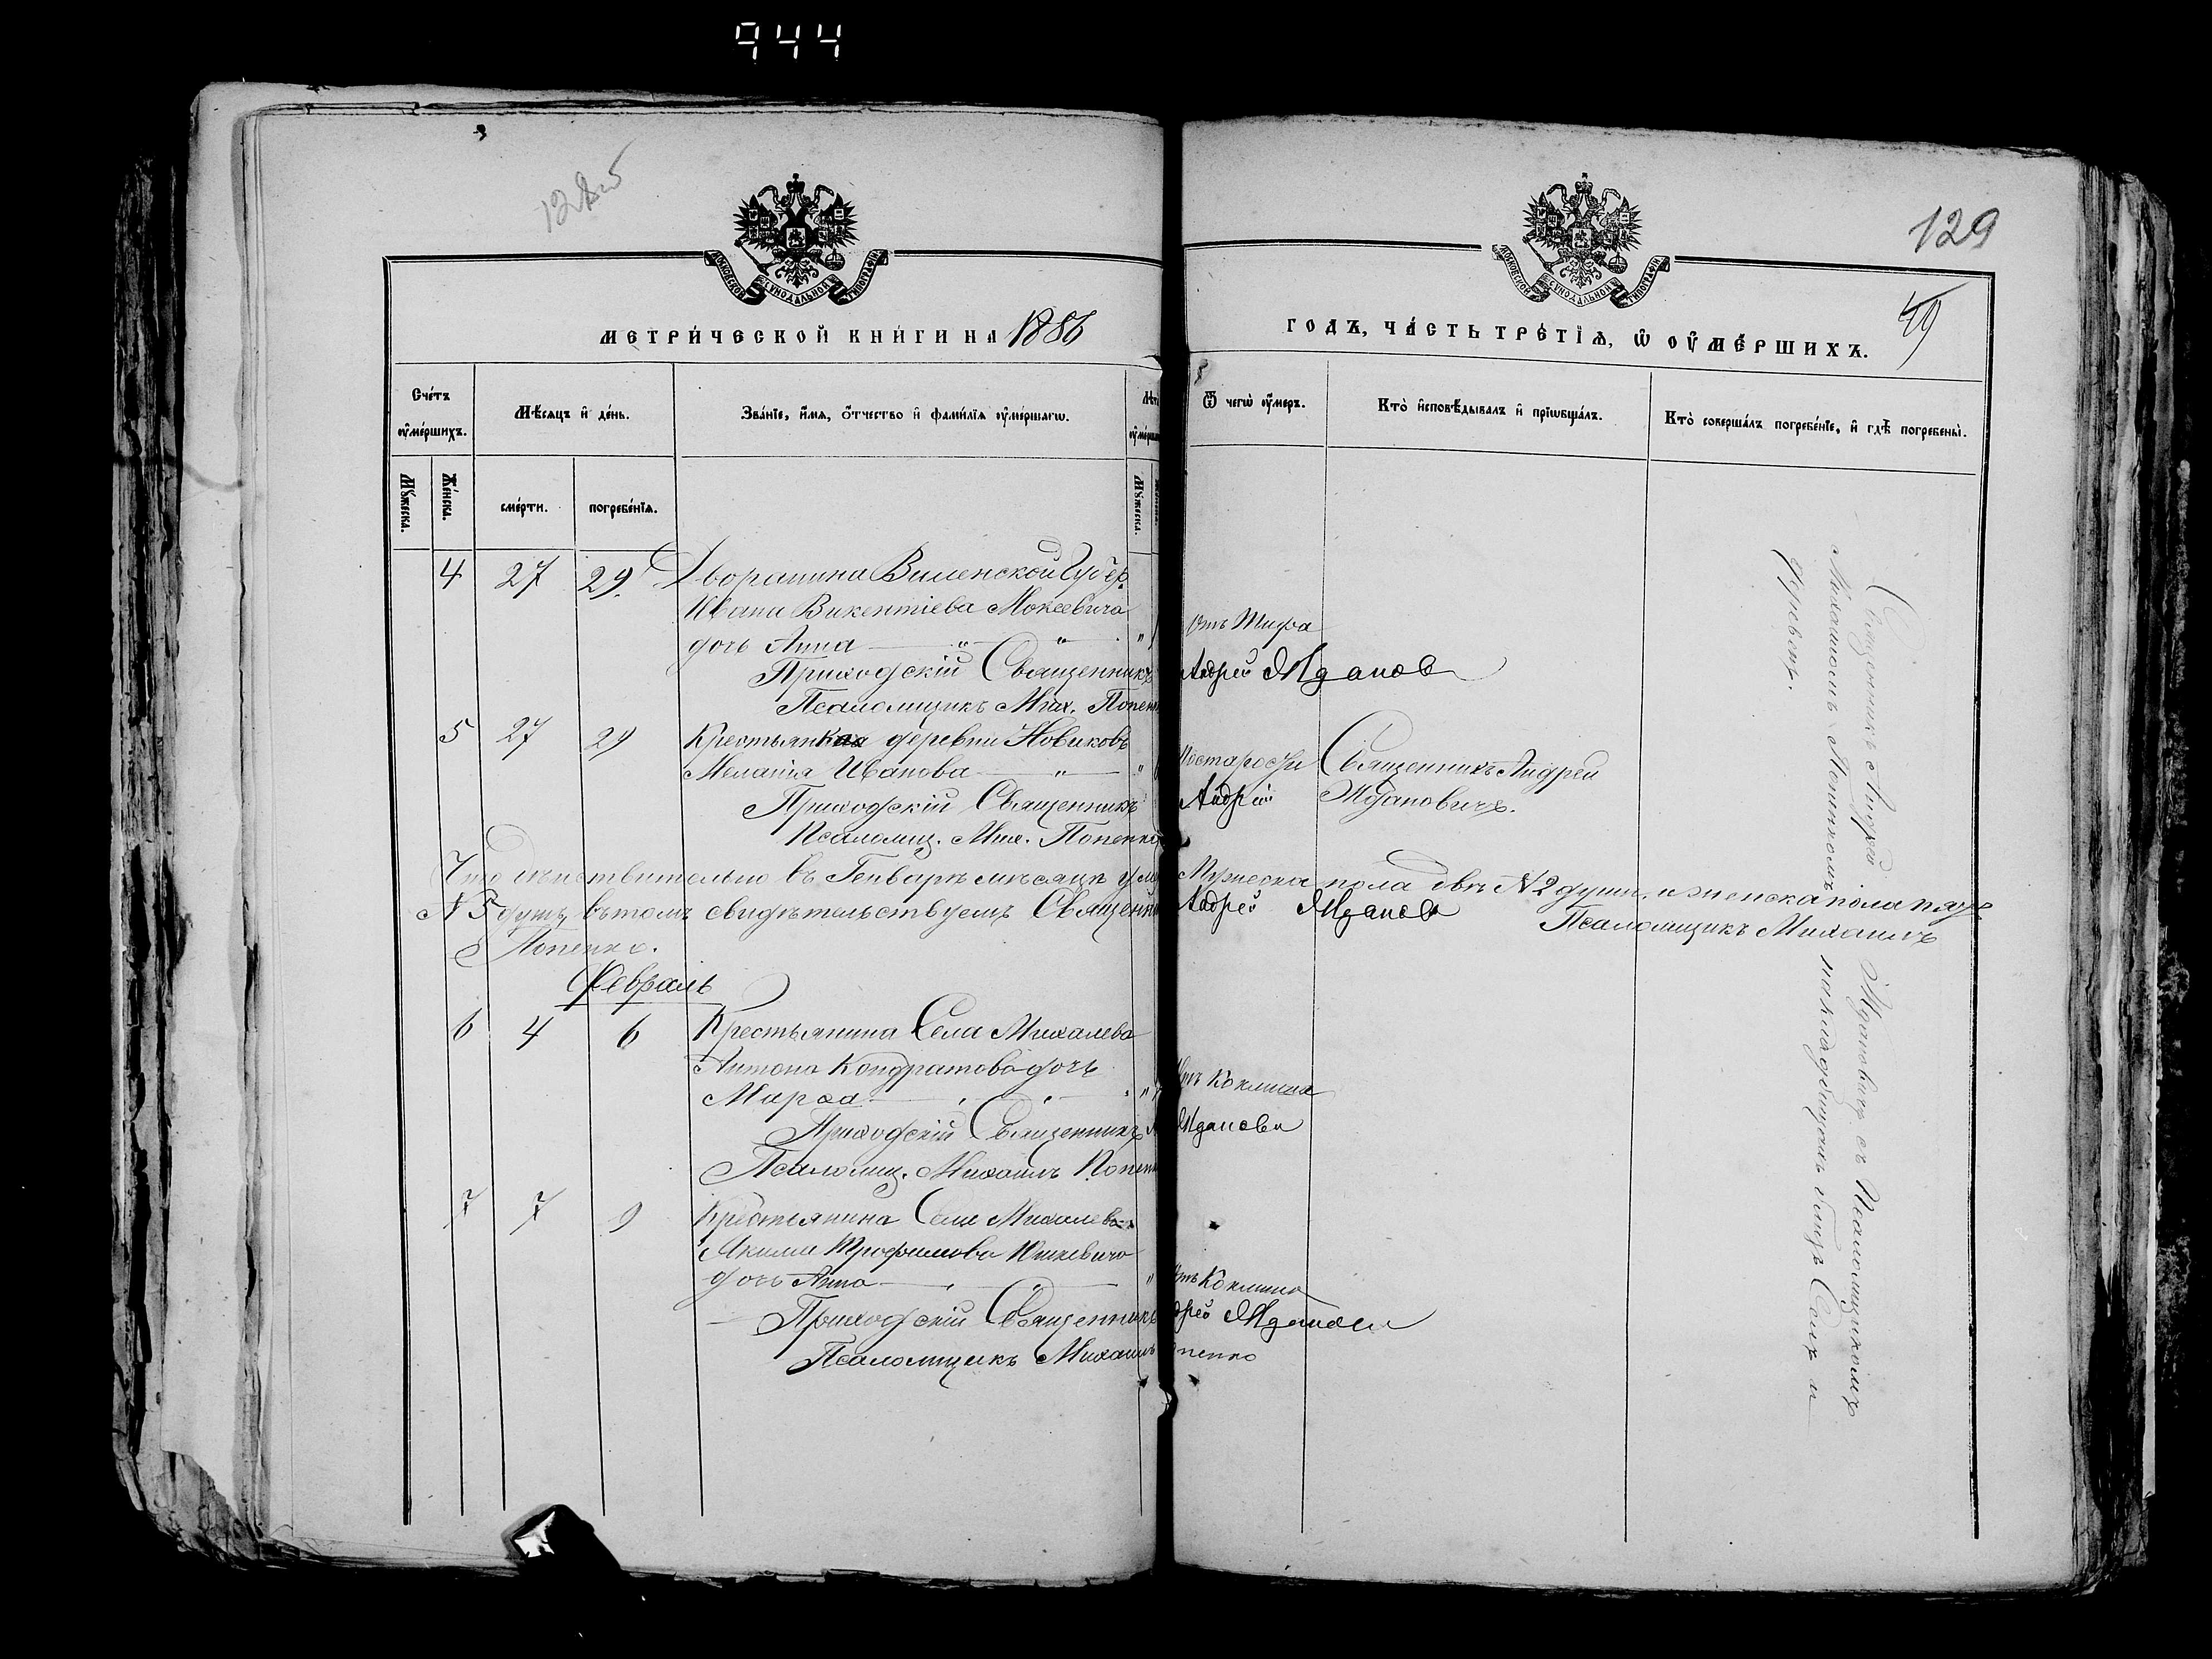 944
128 об
129
49
МОСКОВСКОЙ СѴНОДАЛЬНОЙ ТИПОГРАФІИ
МОСКОВСКОЙ СѴНОДАЛЬНОЙ ТИПОГРАФІИ
МЕТРИ́ЧЕСКОЙ КНИ́ГИ НА 1886
ГОДЪ, ЧА́СТЬ ТРЕ́ТІѦ, Ѡ ОУМЕ́РШИХЪ.
Сче́тъ оуме́ршихъ.
Мѣ́сяцъ и де́нь.
Зва́нїе, и́мя, о́тчество и фами́лїя оуме́ршагѡ.
Ѿ чегѡ̀ оу́меръ.
Кто̀ исповѣ́дывалъ и прїѡбща́лъ.
Кто̀ соверша́лъ погребе́нїе, и гдѣ̀ погребены̀.
Мꙋ́жеска.
Же́нска.
сме́рти.
погребе́нїя.
Мꙋ́жеска.
4 27 29 Дворянина Виленской Губер.
Ивана Викентіева Мокеевича
дочь Анна " " "
Отъ Тифа
Приходскій Священникъ Андрей Жданов
Псаломщикъ Мих. Попен
5 27 29 Крестьянка деревни Новиковъ
Меланія Иванова " "
Священникъ Андрей
Ждановичъ.
Приходскій Священникъ Андрей
Псаломщ. Мих. Попенко
Что дѣйствительно въ Генварѣ мѣсяцѣ уме Мужеска пола двѣ № 2 души, и женска пола пять
№ 5 душъ, въ томъ свидѣтельствуемъ Священни Андрей Жданов Псаломщикъ Михаилъ
Попенко.
Февраль
6 4 6 Крестьянина Села Михалева
Антона Кондратова дочь
Марѳа "
Коклюша
Приходскій Священникъ Жданов
Псаломщ. Михаилъ Попен
7 7 9 Крестьянина Села Михалева
Якима Трофимова
дочь Анна "
Коклюша
Приходскій Священникъ дрей Жданов
Псаломщикъ Михаилъ опенко
Священникъ Андрей Ждановичъ съ Псаломщикомъ
Михаиломъ Попенкомъ на кладбищахъ Селъ и
деревень.